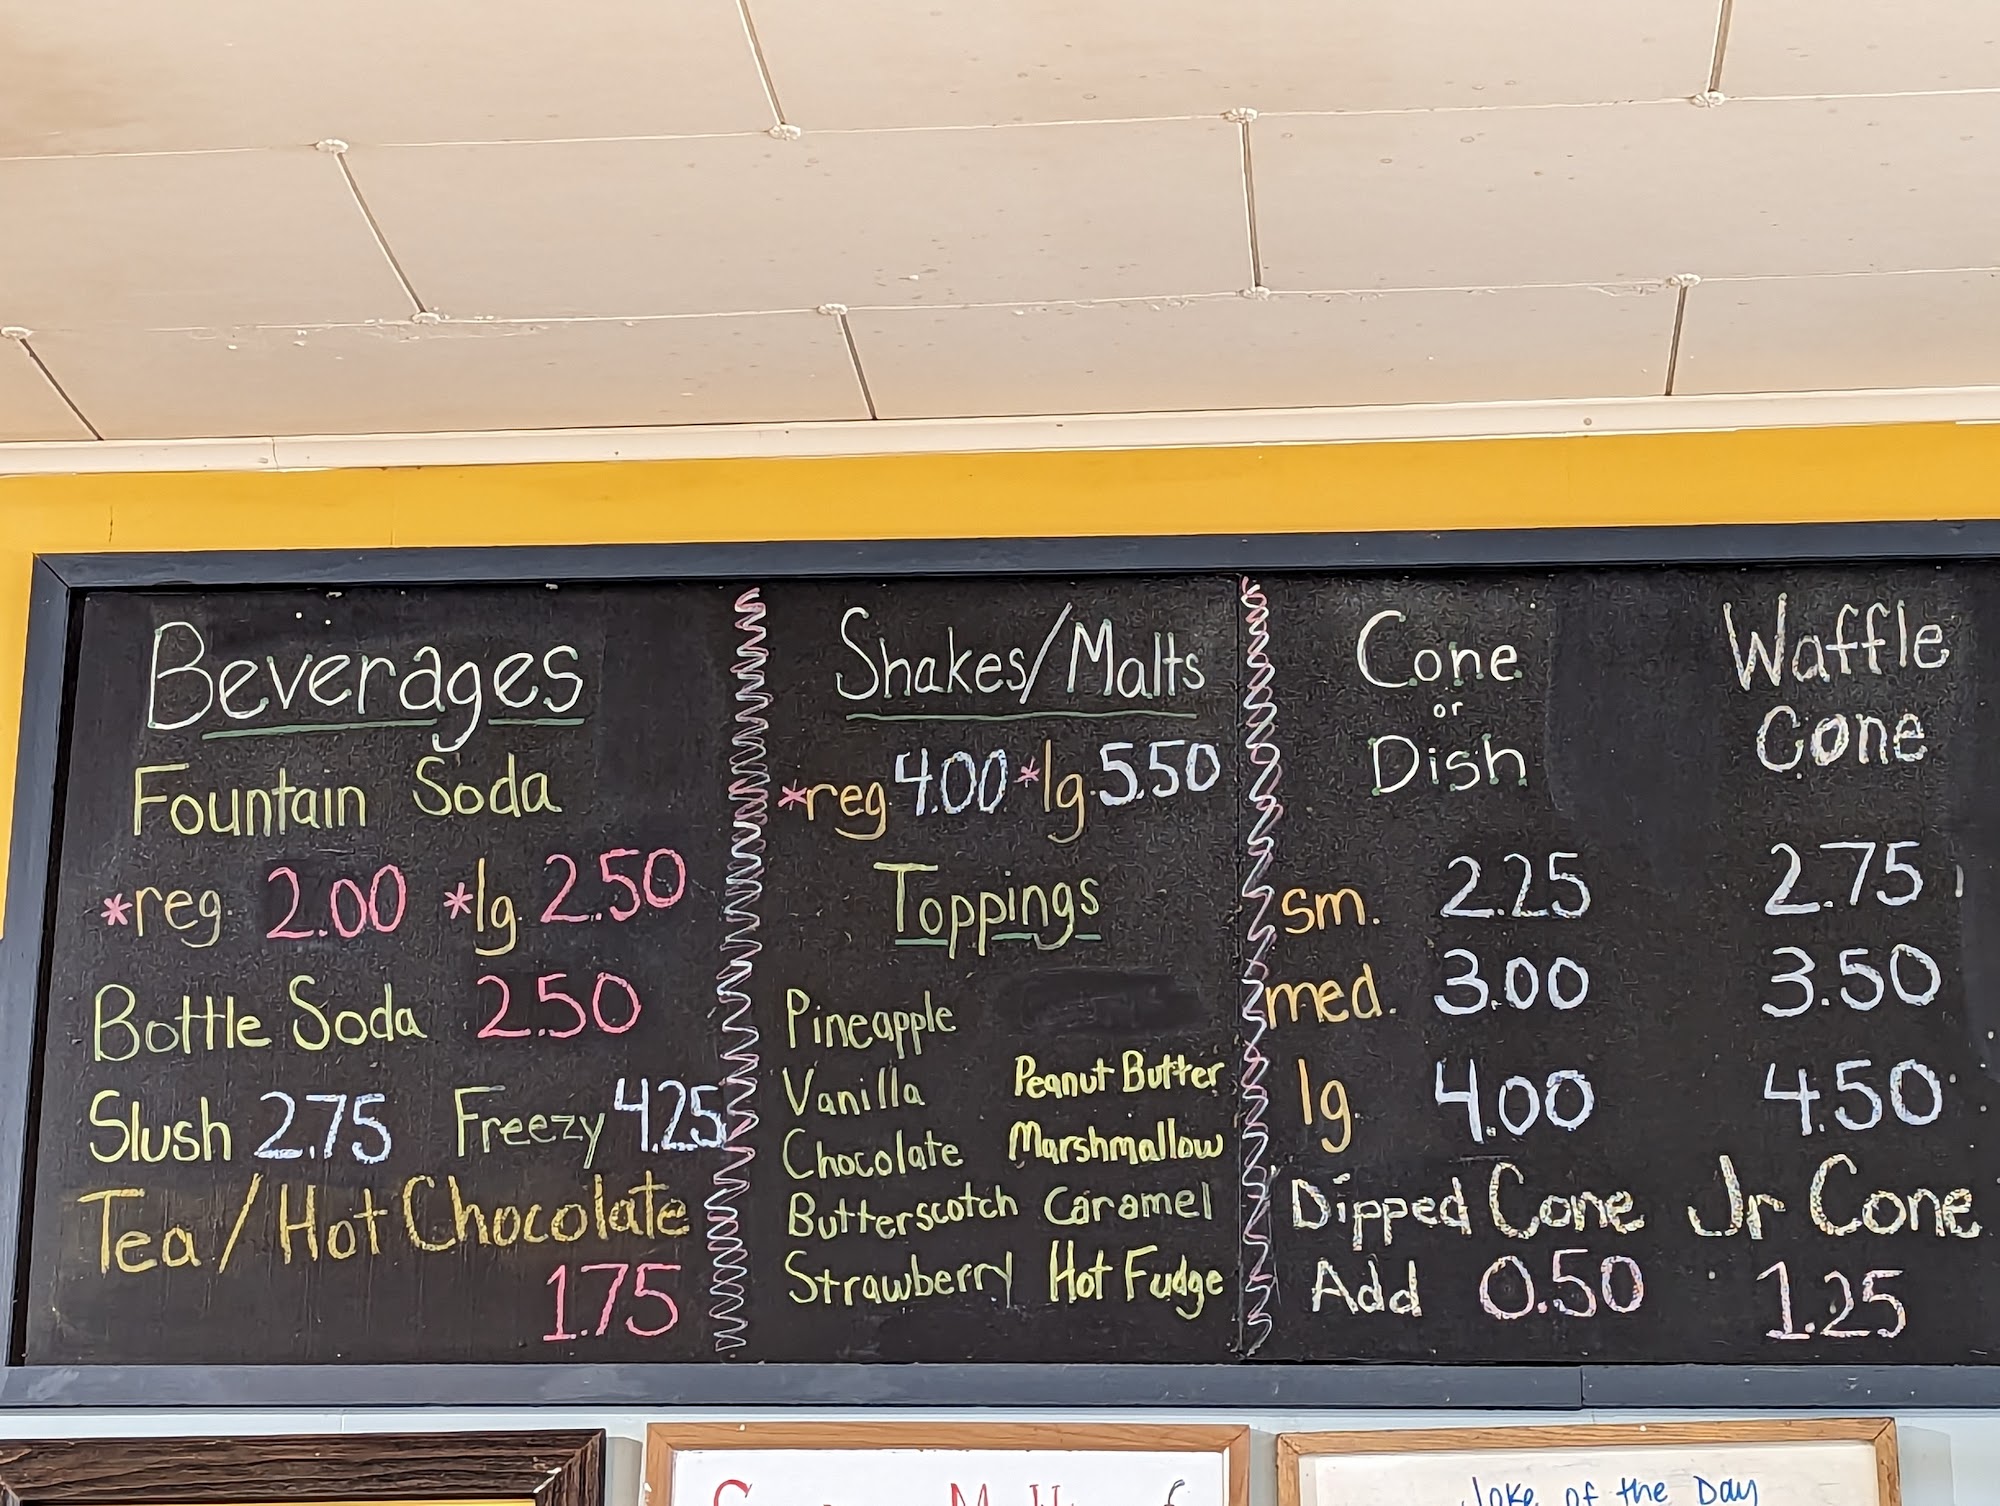 Beverages
Fountain Soda
*reg. 2.00 *lg. 2.50
Bottle Soda 2.50
Slush 2.75 Freezy 4.25
Tea/Hot Chocolate
1.75
Shakes/Malts
*reg. 4.00 *lg. 5.50
Toppings
Pineapple
Vanilla Peanut Butter
Chocolate Marshmallow
Butterscotch Caramel
Strawberry Hot Fudge
Cone
or
Dish
Waffle
Cone
sm. 2.25 2.75
med. 3.00 3.50
lg. 4.00 4.50
Dipped Cone Jr Cone
Add 0.50 1.25
Joke of the Day